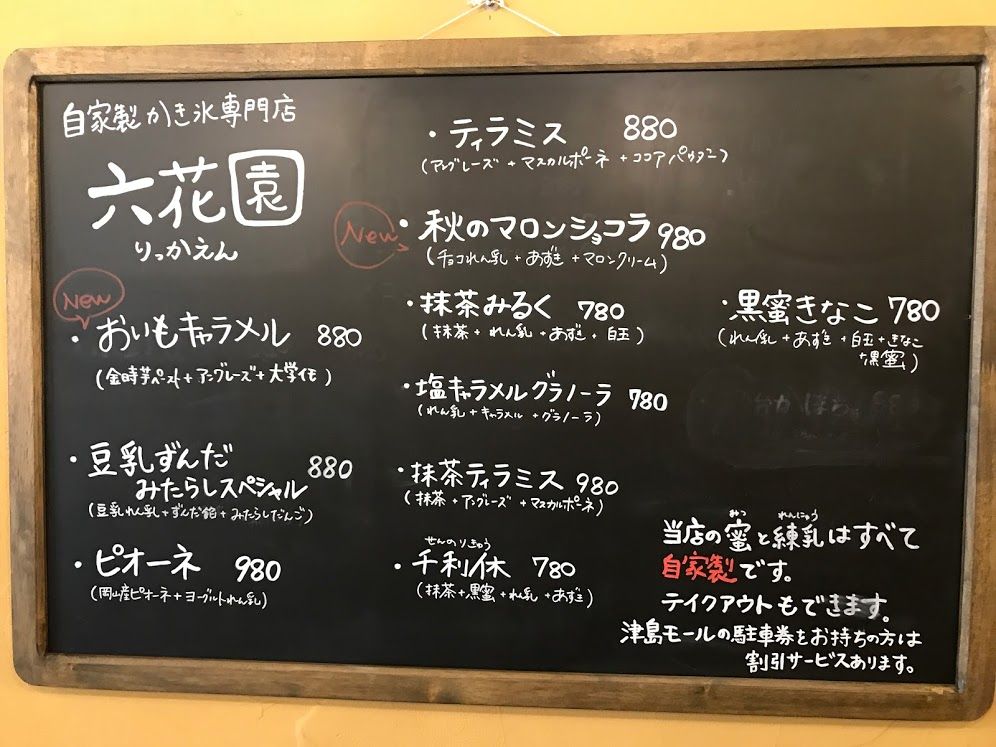 自家製かき氷専門店
六花園
りっかえん
New
・おいもキャラメル 880
(金時芋ペースト+アングレーズ+大学イモ)
・豆乳ずんだ
みたらしスペシャル 880
(豆乳れん乳+ずんだ餡+みたらしだんご)
・ピオーネ 980
(岡山産ピオーネ+ヨーグルトれん乳)
・ティラミス 880
(アングレーズ+マスカルポーネ+ココアパウダー)
New
・秋のマロンショコラ 980
(チョコれん乳+あずき+マロンクリーム)
・抹茶みるく 780
(抹茶+れん乳+あずき+白玉)
・塩キャラメルグラノーラ 780
(れん乳+キャラメル+グラノーラ)
・抹茶ティラミス 980
(抹茶+アングレーズ+マスカルポーネ)
せんのりきゅう
・千利休 780
(抹茶+黒蜜+れん乳+あずき)
・黒蜜きなこ 780
(れん乳+あずき+白玉+きなこ
+黒蜜)
みつ れんにゅう
当店の蜜と練乳はすべて
自家製です。
テイクアウトもできます。
津島モールの駐車券をお持ちの方は
割引サービスあります。